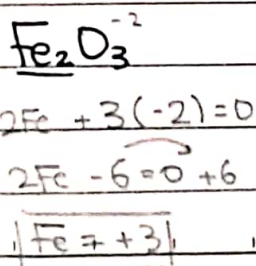 Fe₂O₃⁻²
2Fe + 3(-2) = 0
2Fe - 6 = 0 + 6
Fe = +3